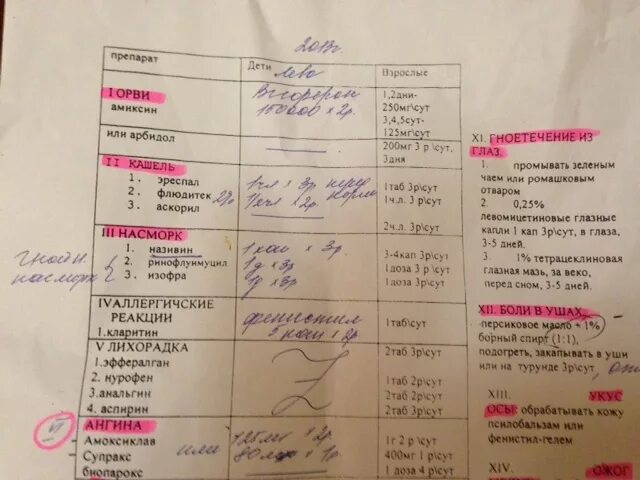 2013г.
препарат Дети Взрослые
I ОРВИ Виферон 1,2дни-
амиксин 150000 х 2р. 250мг\сут
3,4,5сут-
125мг\сут
или арбидол 200мг 3 р\сут,
3дня
II КАШЕЛЬ
1. эреспал 1чл х 3р 1таб 3р\сут
2. флюдитек 2% х 2р. 1ч.л. 3 р\сут
3. аскорил 2ч.л. 3р\сут
III НАСМОРК
1. називин 1 кап х 3р. 3-4кап 3р\сут
гнойн. насморк
2. ринофлуимуцил 1д х 3р 1доза 3 р\сут
3. изофра 1д х 3р 1доза 3р\сут
IV АЛЛЕРГИЧСКИЕ
РЕАКЦИИ фенистил
1.кларитин 5 кап х 2р. 1таб\сут
V ЛИХОРАДКА
1.эффералган 2таб 3р\сут
2. нурофен 1таб 2р\сут
3.анальгин 1таб 2р\сут
4. аспирин 2таб 3р\сут
VI
АНГИНА
Амоксиклав х 2р. 1г 2 р\сут
Супракс или х 1р. 400мг 1 р\сут
биопарокс 1 доза 4 р\сут
XI. ГНОЕТЕЧЕНИЕ ИЗ
ГЛАЗ.
1. промывать зеленым
чаем или ромашковым
отваром
2. 0,25%
левомицетиновые глазные
капли 1 кап 3р\сут, в глаза,
3-5 дней.
3. 1% тетрациклиновая
глазная мазь, за веко,
перед сном, 3-5 дней.
XII. БОЛИ В УШАХ.
персиковое масло + 1%
борный спирт (1:1),
подогреть, закапывать в уши
или на турунде 3р\сут,
XIII. УКУС
ОСЫ: обрабатывать кожу
псилобальзам или
фенистил-гелем
XIV. ОЖОГ